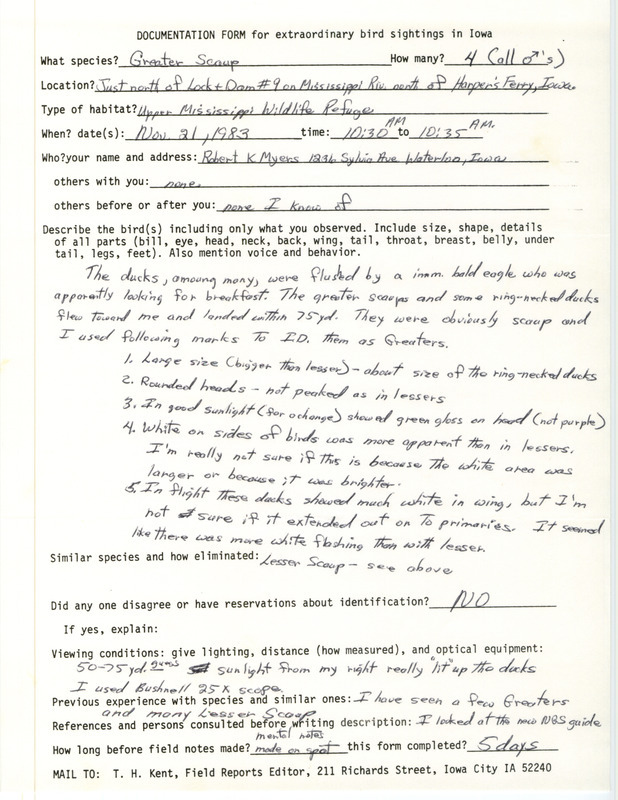 DOCUMENTATION FORM for extraordinary bird sightings in Iowa
What species? Greater Scaup How many? 4 (all ♂'s)
Location? Just north of Lock + Dam #9 on Mississippi Riv. north of Harper's Ferry, Iowa.
Type of habitat? Upper Mississippi Wildlife Refuge
When? date(s): Nov. 21, 1983 time: 10:30 AM to 10:35 A.M.
Who? your name and address: Robert K Myers 1236 Sylvia Ave Waterloo, Iowa
others with you: none
others before or after you: none I know of
Describe the bird(s) including only what you observed. Include size, shape, details
of all parts (bill, eye, head, neck, back, wing, tail, throat, breast, belly, under
tail, legs, feet). Also mention voice and behavior.
The ducks, amoung many, were flushed by a imm. bald eagle who was
apparently looking for breakfast. The greater scaups and some ring-necked ducks
flew toward me and landed within 75 yd. They were obviously scaup and
I used following marks to I.D. them as Greaters.
1. Large size (bigger than lesser) - about size of the ring-necked ducks
2. Rounded heads - not peaked as in lessers
3. In good sunlight (for a change) showed green gloss on head (not purple)
4. White on sides of birds was more apparent than in lessers.
I'm really not sure if this is because the white area was
larger or because it was brighter.
5. In flight these ducks showed much white in wing, but I'm
not sure if it extended out on to primaries. It seemed
like there was more white flashing than with lesser.
Similar species and how eliminated: Lesser Scaup - see above
Did any one disagree or have reservations about identification? NO
If yes, explain:
Viewing conditions: give lighting, distance (how measured), and optical equipment:
50-75 yd. guess sunlight from my right really "lit" up the ducks
I used Bushnell 25X scope.
Previous experience with species and similar ones: I have seen a few Greaters
and many Lesser Scaup
References and persons consulted before writing description: I looked at the new NGS guide
mental notes
How long before field notes made? made on spot this form completed? 5 days
MAIL TO: T. H. Kent, Field Reports Editor, 211 Richards Street, Iowa City IA 52240